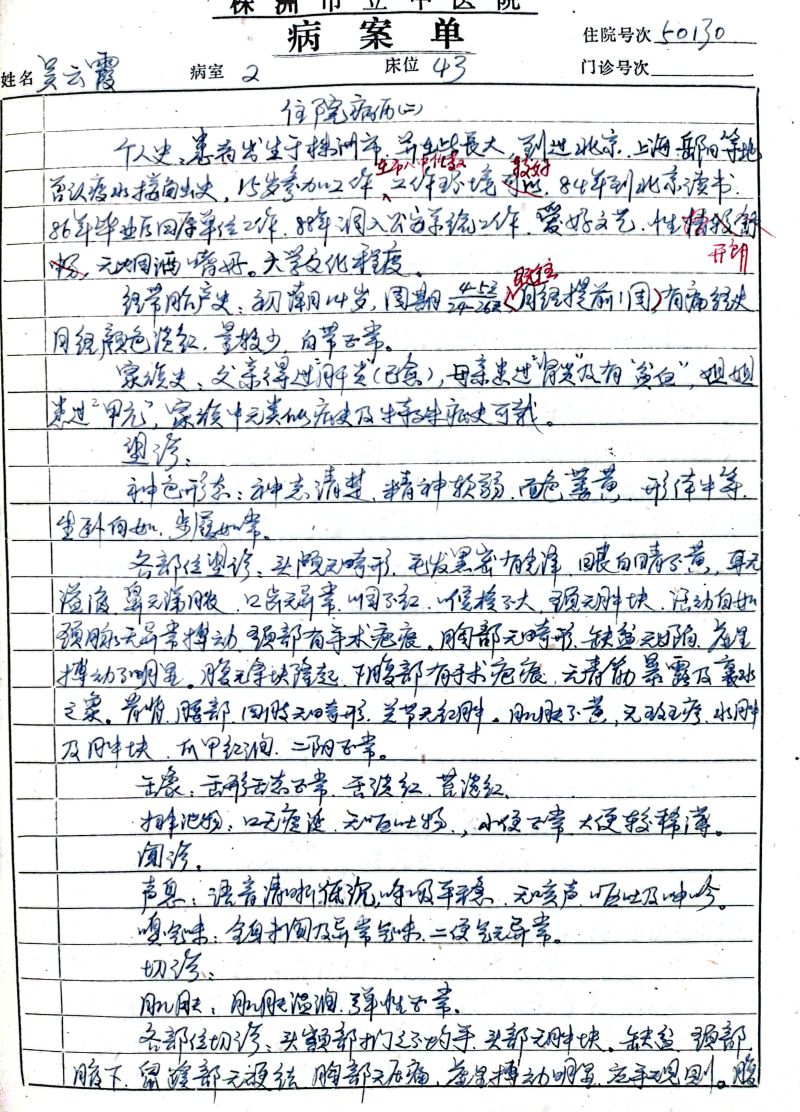 株洲市立中医院
病案单
住院号次 50130
姓名 吴云霞 病室 2 床位 43 门诊号次
住院病历(二)
个人史：患者出生于株洲市，并在此长大，到过北京、上海、岳阳等地
否认疫水接触史，15岁参加工作，工作环境较好，84年到北京读书
86年毕业后回原单位工作，88年调入公安系统工作，爱好文艺，性情
开朗，无烟酒嗜好。大学文化程度。
经带胎产史：初潮14岁，周期4-5天/24-26天（月经提前1周）有痛经史
月经颜色淡红，量较少，白带正常。
家族史：父亲得过“肝炎”(已愈)，母亲患过“肾炎”及有“贫血”，姐姐
患过“甲亢”，家族中无类似病史及特殊病史可载。
望诊：
神色形态：神志清楚，精神软弱，面色萎黄，形体中等，
坐卧自如，步履如常。
各部位望诊：头颅无畸形，毛发黑密有光泽，目眼白睛不黄，耳无
溢液，鼻无涕脓，口齿无异常，咽不红，喉核不大，颈无肿块，活动自如
颈脉无异常搏动，颈部有手术疤痕。胸部无畸形，缺盆无凹陷，虚里
搏动不明显。腹无痞块隆起，下腹部有手术疤痕，无青筋暴露及囊水
之象。脊背、腰部、四肢无畸形，关节无红肿。肌肤不黄，无斑疹、水肿
及肿块，爪甲红润，二阴正常。
舌象：舌形舌态正常，舌淡红，苔淡红。
排泄物：口无痰涎，无呕吐物，小便正常，大便较稀薄。
闻诊。
声息：语音清晰低沉，呼吸平稳，无咳声呕吐及呻吟。
嗅气味：全身未闻及异常气味，二便气无异常。
切诊：
肌肤：肌肤温润，弹性正常。
各部位切诊：头额部扪之不灼手，头部无肿块。缺盆、颈部、
腋下、鼠蹊部无硬结，胸部无压痛，虚里搏动明显，应手规则。腹